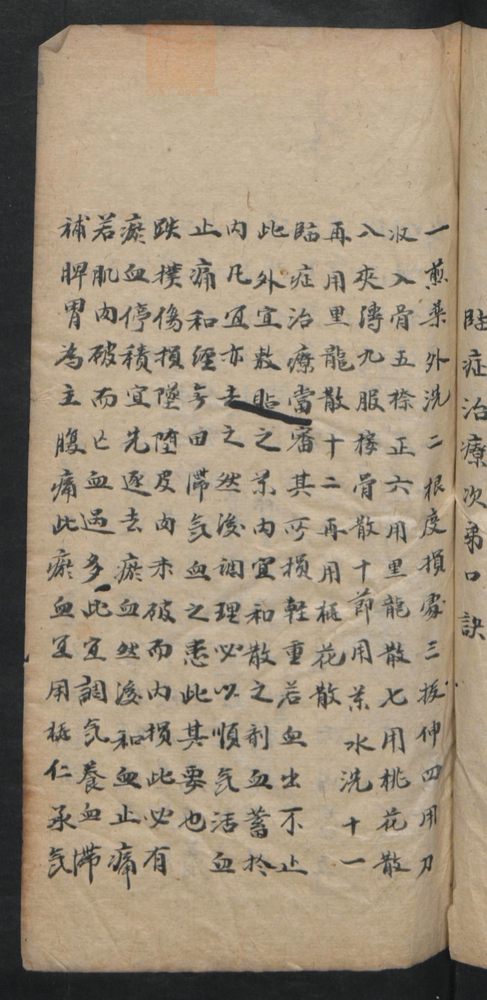 臨症治療次第口訣
一煎藥外洗二根度損處三拔伸四用刀
收入骨五捺正六用里龍散七用桃花散
入夾縛九服接骨散十節用茶水洗十一
再用里龍散十二再用桃花散
臨症治療當審其所損輕重若血出不止
此外宜敷貼之茶內宜和散之劑血蓄於
內凡宜亦去之然後調理必以順氣活血
止痛和經旁由滯氣血之恙此其要也
跌撲傷損墜墮皮肉未破而內損此必有
瘀血停積宜先逐去瘀血然後和血止痛
若肌肉破而亡血過多此宜調氣養血滯
補脾胃為主腹痛此瘀血宜用桃仁承氣